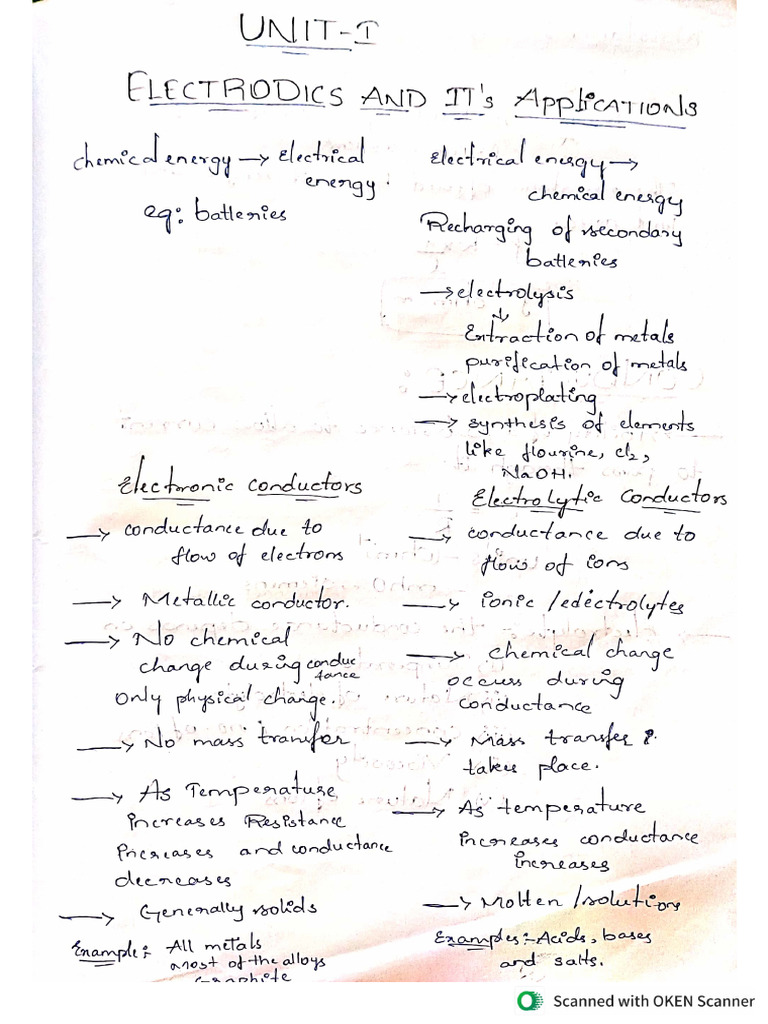 UNIT-I
ELECTRODICS AND IT's APPlICATIONS
chemical energy → Electrical
energy.
eg: batteries
Electrical energy →
chemical energy
Recharging of secondary
batteries
→ electrolysis
↓
Extraction of metals
purification of metals
→ electroplating
→ synthesis of elements
like flourine, cl₂,
NaOH.
Electronic conductors
→ conductance due to
flow of electrons
→ Metallic conductor.
→ No chemical
change during conduc
tance
Only physical change.
→ No mass transfer
→ As Temperature
increases Resistance
increases and conductance
decreases
→ Generally solids
Example:- All metals
most of the alloys
Graphite
Electrolytic Conductors
→ conductance due to
flow of ions
→ ionic / electrolytes
→ chemical change
occurs during
conductance
→ Mass transfer
takes place.
→ As temperature
increases conductance
increases
→ Molten /solution
Examples:- Acids, bases
and salts.
Scanned with OKEN Scanner